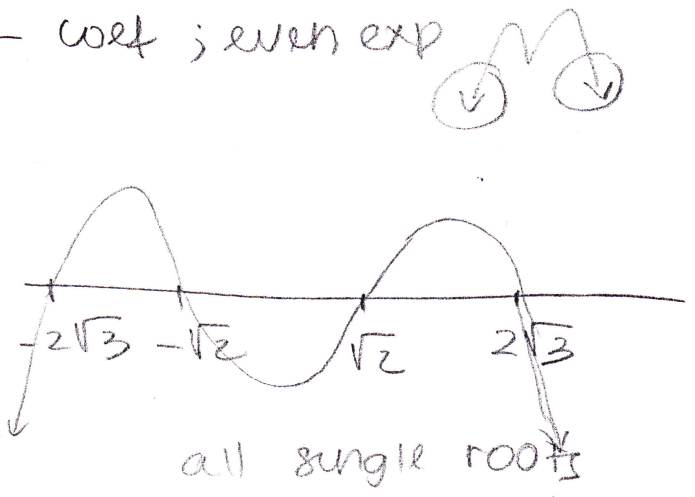 - coef ; even exp
-2√3 -√2 √2 2√3
all single roots